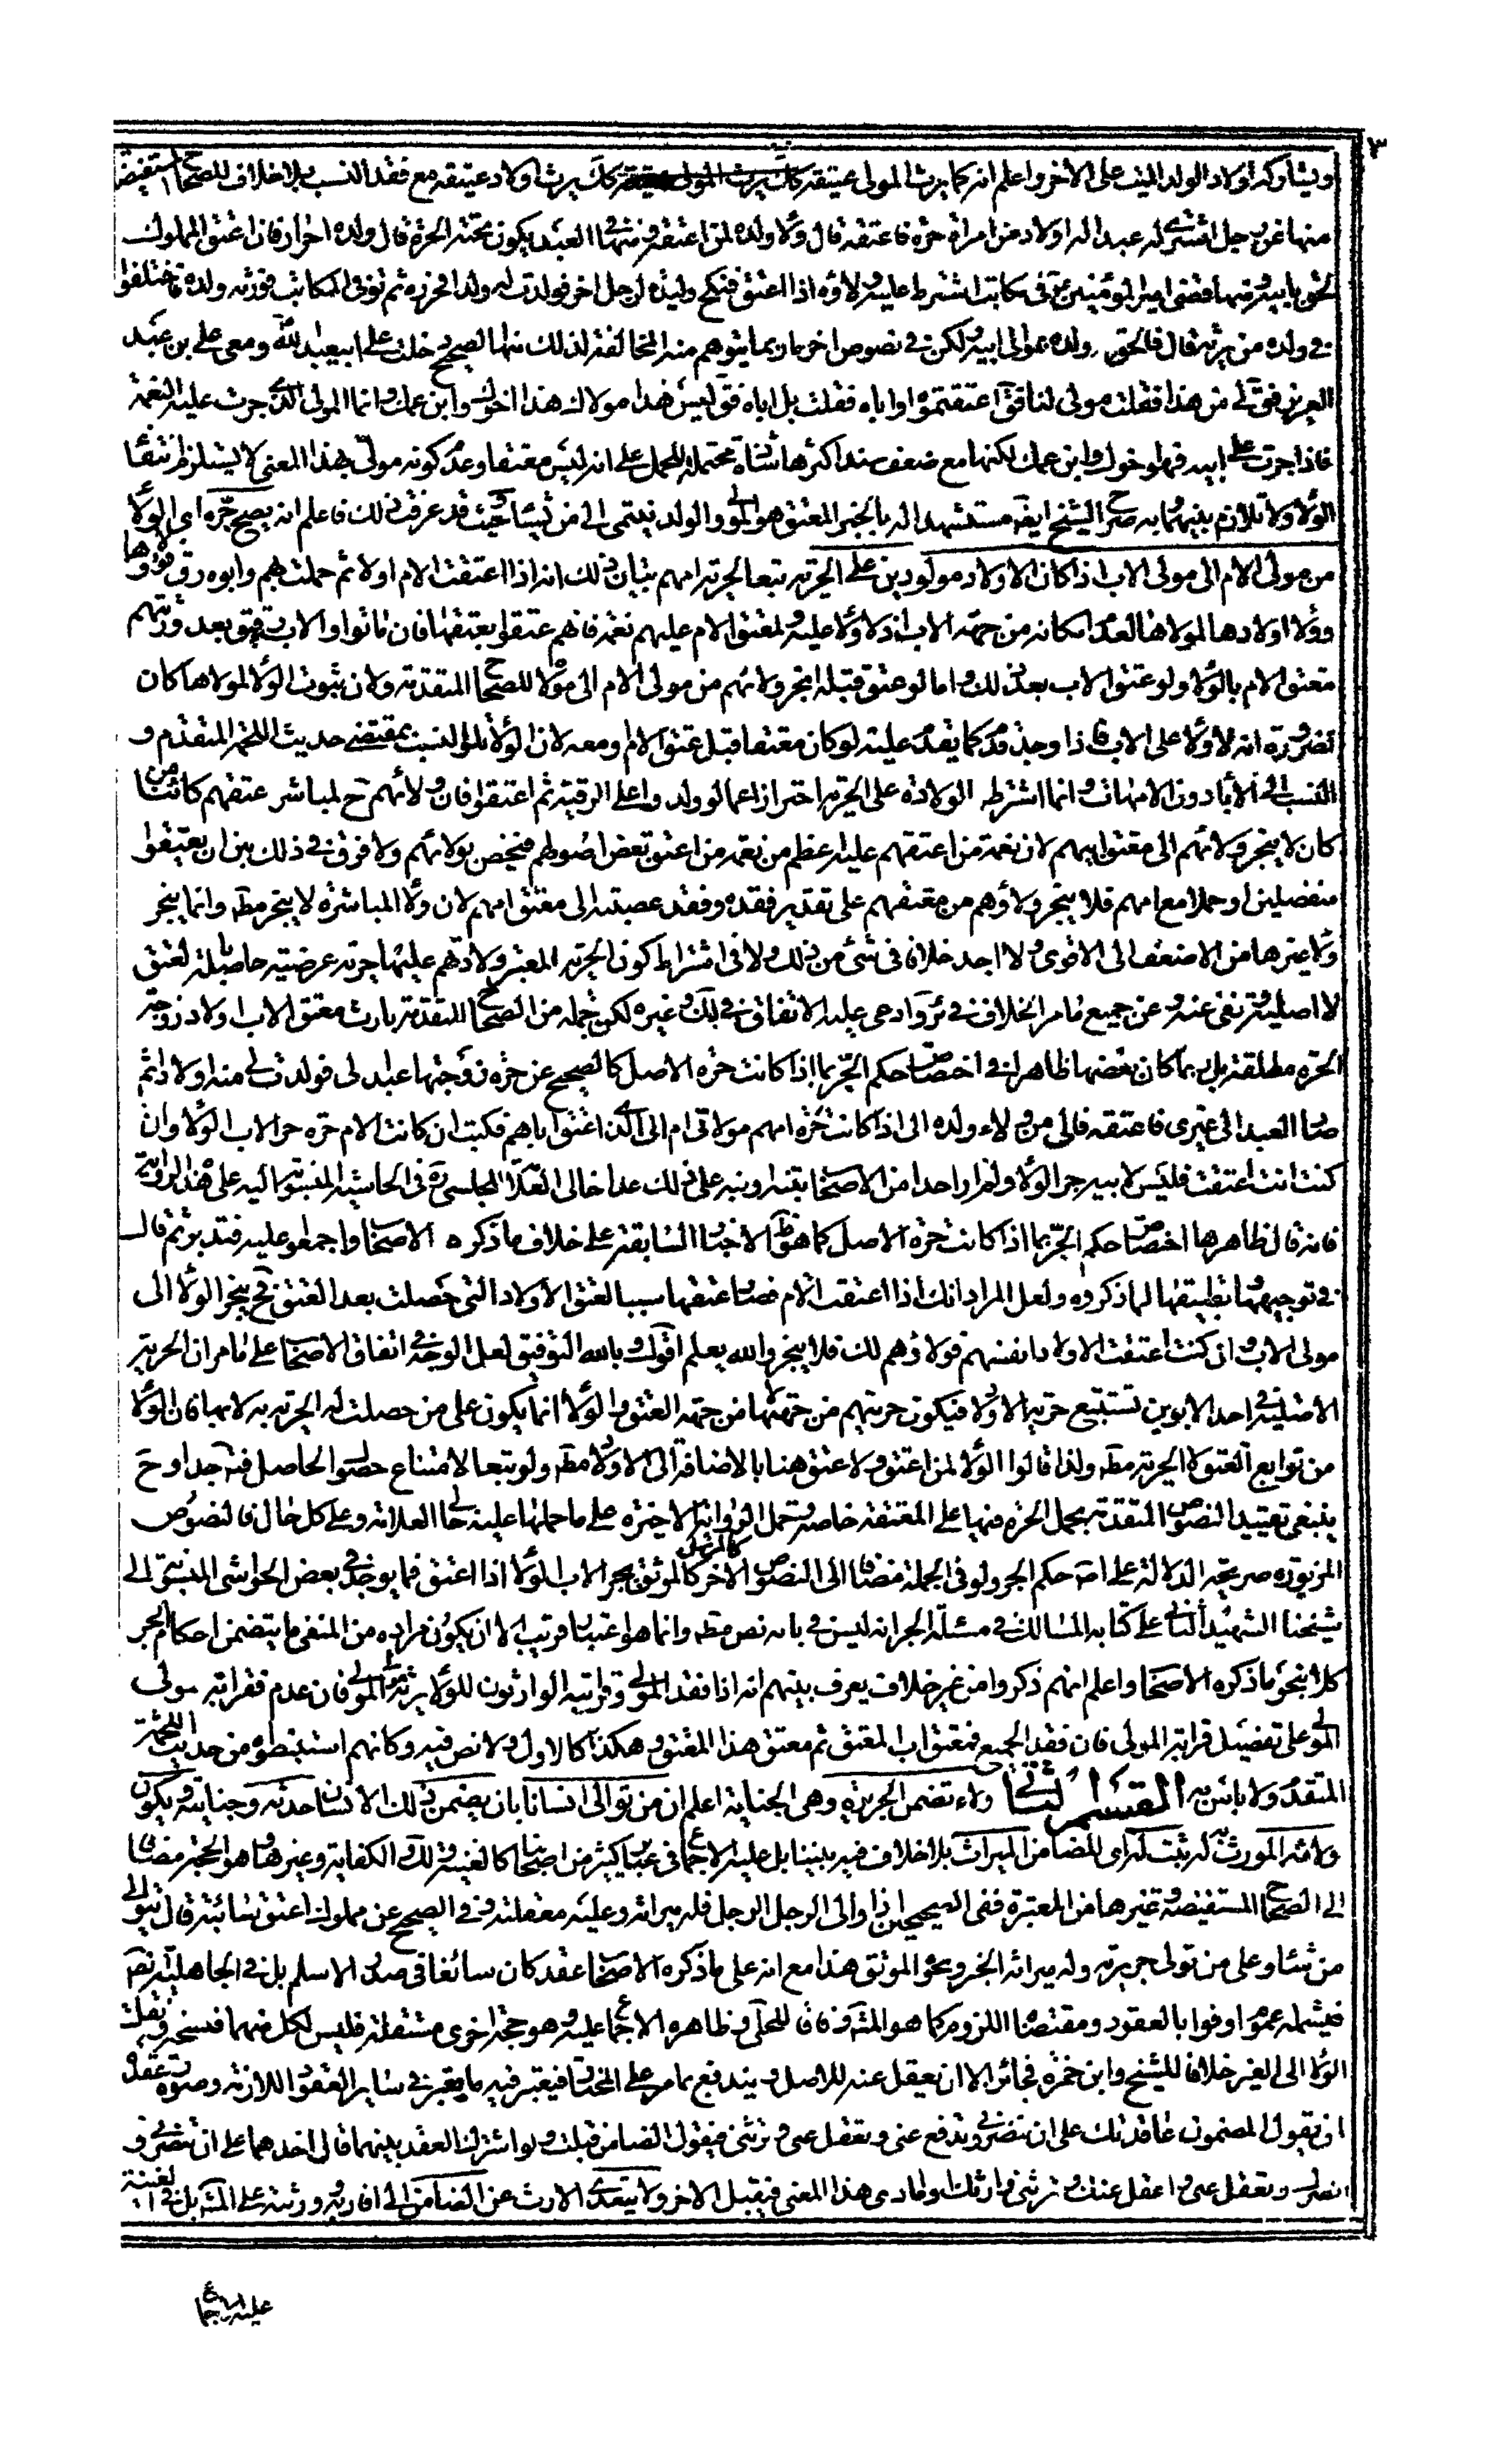 ويشاركه اولاد الولد الميت على الاخر واعلم انه كما يرث المولى عتيقه كك يرث اولاد عتيقه مع فقد النسب بلا خلاف للصحا المستفيضة
منها عن رجل اشترى عبدا له اولاد من امراة حرة فاعتقه قال ولاء ولده لمن اعتقه ومنها في العبد يكون تحته الحرة قال ولده احرار فان اعتق المملوك
لحق بابيه ومنها قضى امير المؤمنين ع في مكاتب اشترط عليه ولاؤه اذا اعتق فنكح وليدة لرجل اخر فولدت له ولدا فحرر ولده ثم توفى المكاتب فورثه ولده فاختلفوا
في ولده من يرثه قال فالحق ولده بموالى ابيه لكن في نصوص اخر ما ربما يتوهم منه المخالفة لذلك منها الصحيح دخلت على ابيعبد الله ومعى على بن عبد
العزيز فقال لى من هذا فقلت مولى لنا فقال اعتقتموه او اباه فقلت بل اباه فقال ليس هذا مولاك هذا اخوك وابن عمك وانما المولى الذى جرت عليه النعمة
فاذا جرت على ابيه فهو اخوك وابن عمك لكنها مع ضعف سند اكثرها شاذة محتملة للحمل على انه ليس معتقا وعدم كونه مولى بهذا المعنى لا يستلزم انتفاء
الولاء ولا تلازم بينهما وبه صرح الشيخ ايضا مستشهدا له بالخبر المعتق هو المولى والولد ينتمى الى من يشاء وحيث قد عرفت ذلك فاعلم انه يصح جره اى الولاء
من مولى الام الى مولى الاب اذا كان الاولاد مولودين على الحرية تبعا لحرية امهم بيان ذلك انه اذا اعتقت الام اولا ثم حملت بهم وابوهم رق فولاؤها
وولاء اولادها لمولاها لعدم امكانه من جهة الاب اذ لا ولاء عليه ولمعتق الام عليهم نعمة فانهم عتقوا بعتقها فان ماتوا والاب رقيق بعد ورثهم
معتق الام بالولاء ولو عتق الاب بعد ذلك واما لو عتق قبله انجر ولائهم من مولى الام الى مولاه للصحاح المتقدمة ولان ثبوت الولاء لمولاها كان
لضرورة انه لا ولاء على الاب فاذا وجد قدم كما يقدم عليه لو كان معتقا قبل عتق الام او معه لان الولاء تلو النسب بمقتضى حديث اللحمة المتقدم و
النسب الى الاباء دون الامهات وانما اشترط الولادة على الحرية احترازا عما لو ولدوا على الرقية ثم اعتقوا فان ولائهم ح لمباشر عتقهم كائنا من
كان لا ينجر ولائهم الى معتق ابيهم لان نعمة من اعتقهم عليه اعظم من نعمة من اعتق بعض اصولهم فيختص بولائهم ولا فرق في ذلك بين ان يعتقوا
منفصلين او حملا مع امهم فلا ينجر ولاؤهم من معتقهم على تقدير فقده وفقد عصبته الى معتق امهم لان ولاء المباشرة لا ينجر مطلقا وانما ينجر
ولاء غيرها من الاضعف الى الاقوى ولا اجد خلافا في شئ من ذلك ولا في اشتراط كون الحرية المعتبر ولادتهم عليها حرية عرضية حاصلة بالعتق
لا اصلية ونفى عنه وعن جميع ما مر الخلاف في ئر وادعى عليه الاتفاق في لك وغيره لكن جملة من الصحاح المتقدمة بارث معتق الاب اولاد زوجته
الحرة مطلقة بل ربما كان بعضها ظاهرا في اختصاص حكم الجر بما اذا كانت حرة الاصل كالصحيح عن حرة زوجتها عبدا لى فولدت لى منه اولادا ثم
صار العبد الى غيرى فاعتقه فالى من ولاء ولده الى اذا كانت حرة امهم مولاتى ام الى الذى اعتق اباهم فكتب ان كانت الام حرة جر الاب الولاء وان
كنت انت اعتقت فليس لابيه جر الولاء ولم ار احدا من الاصحاب تنبه او نبه على ذلك عدا خالى العلامة المجلسى ره في الحاشية المنسوبة اليه على هذه الرواية
فانه قال ظاهرها اختصاص حكم الجر بما اذا كانت حرة الاصل كما هو ظاهر الاخبار السابقة على خلاف ما ذكره الاصحاب واجمعوا عليه فتدبر ثم قال
في توجيهها وتطبيقها لما ذكروه ولعل المراد انك اذا اعتقت الام فصار عتقها سببا لعتق الاولاد التى حصلت بعد العتق فح ينجر الولاء الى
مولى الاب وان كنت اعتقت الاولاد انفسهم فولاؤهم لك فلا ينجر والله يعلم اقول وبالله التوفيق لعل الوجه في اتفاق الاصحاب على ما مر ان الحرية
الاصلية في احد الابوين تستتبع حرية الاولاد فيكون حريتهم من جهتها لا من جهة العتق والولاء انما يكون على من حصلت له الحرية به لا بها فان الولاء
من توابع العتق لا الحرية مطلقا ولذا قالوا الولاء لمن اعتق ولا عتق هنا بالاضافة الى الاولاد مطلقا ولو تبعا لامتناع حصول الحاصل فتامل جدا وح
ينبغى تقييد النصوص المتقدمة بحمل الحرة فيها على المعتقة خاصة وتحمل الرواية الاخيرة على ما حملها عليه خالى العلامة وعلى كل حال فالنصوص
المزبورة صريحة الدلالة على اصل حكم الجر ولو في الجملة مضافا الى النصوص الاخر كالمرسل كالموثق يجر الاب الولاء اذا اعتق فما يوجد في بعض الحواشى المنسوبة الى
شيخنا الشهيد الثانى على كتابه المسالك في مسئلة الجر انه ليس في بابه نص مطلقا وانما هو اعتبار قريب الا ان يكون مراده من المنفى ما يتضمن احكام الجر
كلا بنحو ما ذكره الاصحاب واعلم انهم ذكروا من غير خلاف يعرف بينهم انه اذا فقد المولى وقرابته الوارثون للولاء يرثه مولى المولى فان عدم فقرابة مولى
المولى على تفصيل قرابة المولى فان فقد الجميع فمعتق اب المعتق ثم معتق هذا المعتق وهكذا كالاول ولا نص فيه وكانهم استنبطوه من حديث اللحمة
المتقدم ولا باس به القسم الثانى ولاء تضمن الجريرة وهى الجناية اعلم ان من توالى انسانا بان يضمن ذلك الانسان حدثه وجنايته ويكون
ولائه المورث به له ثبت له اى للضامن الميراث بلا خلاف فيه بيننا بل عليه الاجماع في عبائر كثير من اصحابنا كالغنية ولك والكفاية وغيرها وهو الحجة مضافا
الى الصحاح المستفيضة وغيرها من المعتبرة ففى الصحيحين اذا والى الرجل الرجل فله ميراثه وعليه معقلته وفي الصحيح عن مملوك اعتق سائبة قال يتولى
من شاء وعلى من تولى جريرته وله ميراثه الخبر ونحو الموثق هذا مع انه على ما ذكره الاصحاب عقد كان سائغا في صدر الاسلام بل في الجاهلية ايضا
فيشمله عموم اوفوا بالعقود ومقتضاها اللزوم كما هو المشهور وفاقا للحلى وظاهره الاجماع عليه وهو حجة اخرى مستقلة فليس لكل منهما فسخه ونقل
الولاء الى الغير خلافا للشيخ وابن حمزة فجائز الا ان يعقل عنه للاصل ويندفع بما مر على المختار فيعتبر فيه ما يعتبر في سائر العقود اللازمة وصورة عقده
ان يقول المضمون عاقدتك على ان تنصرنى وتدفع عنى وتعقل عنى وترثنى فيقول الضامن قبلت ولو اشترك العقد بينهما قال احدهما على ان تنصرنى و
انصرك وتعقل عنى واعقل عنك وترثنى وارثك او ما ادى هذا المعنى فيقبل الاخر ولا يتعدى الارث عن الضامن الى اقاربه وورثته على المشهور بل في الغنية
عليه الاجماع